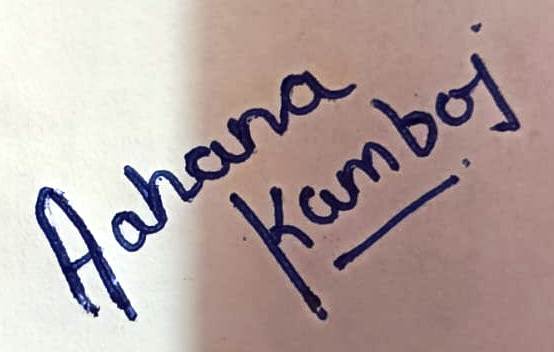 Aahana
Kamboj